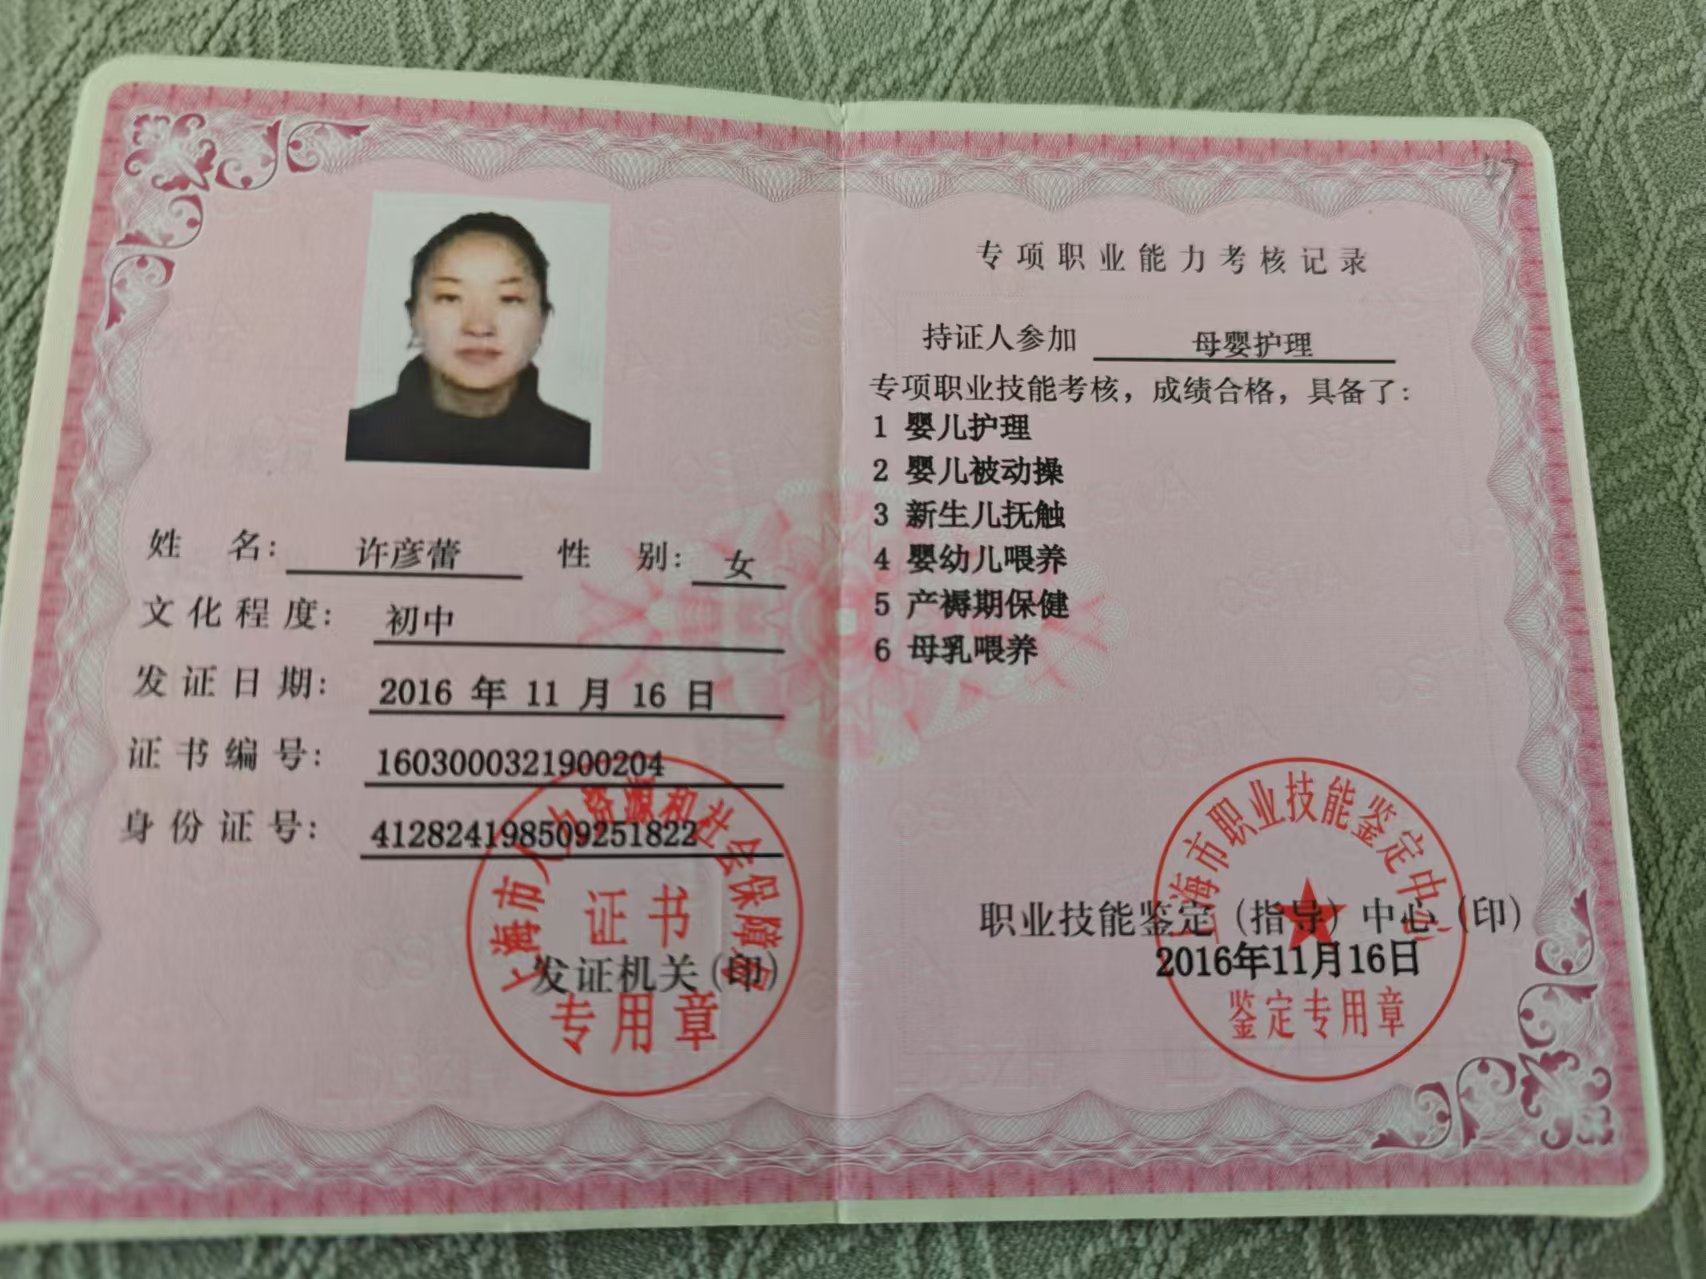 姓 名: 许彦蕾 性 别: 女
文化程度: 初中
发证日期: 2016 年 11 月 16 日
证书编号: 1603000321900204
身份证号: 412824198509251822
上海市人力资源和社会保障局
证书
发证机关(印)
专用章
47
专项职业能力考核记录
持证人参加 母婴护理
专项职业技能考核，成绩合格，具备了:
1 婴儿护理
2 婴儿被动操
3 新生儿抚触
4 婴幼儿喂养
5 产褥期保健
6 母乳喂养
上海市职业技能鉴定中心
职业技能鉴定(指导)中心(印)
2016年11月16日
鉴定专用章